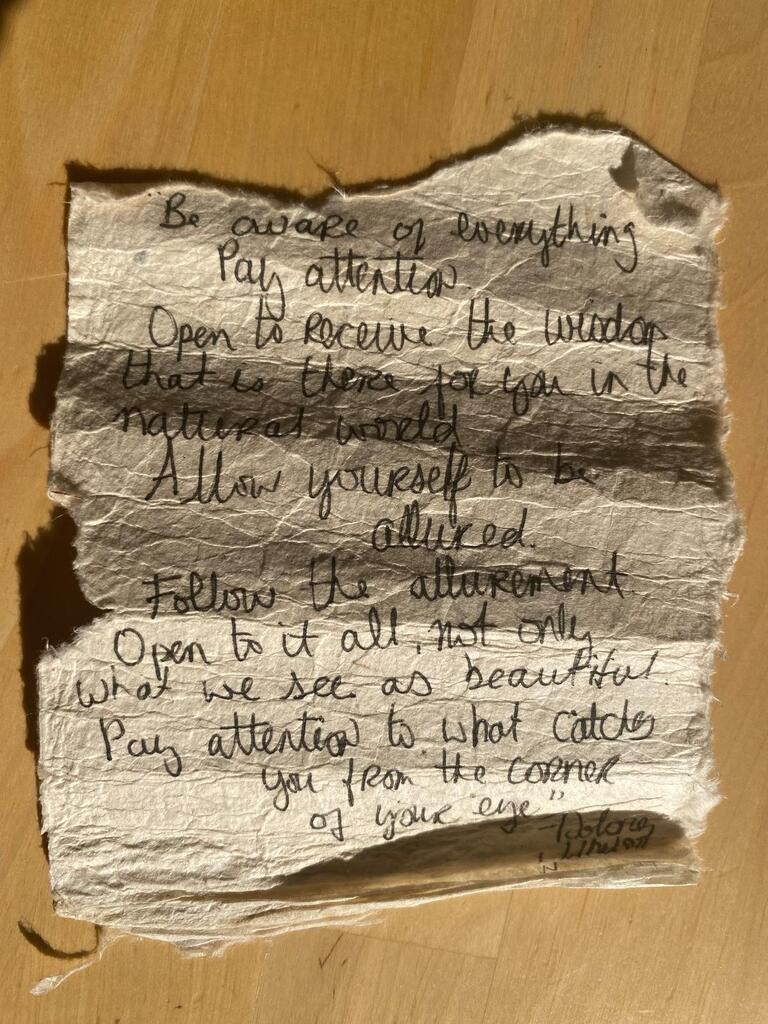 "Be aware of everything
Pay attention.
Open to receive the wisdom
that is there for you in the
natural world
Allow yourself to be
allured.
Follow the allurement.
Open to it all, not only
what we see as beautiful.
Pay attention to what catches
you from the corner
of your eye"
-Dolores
Whelan